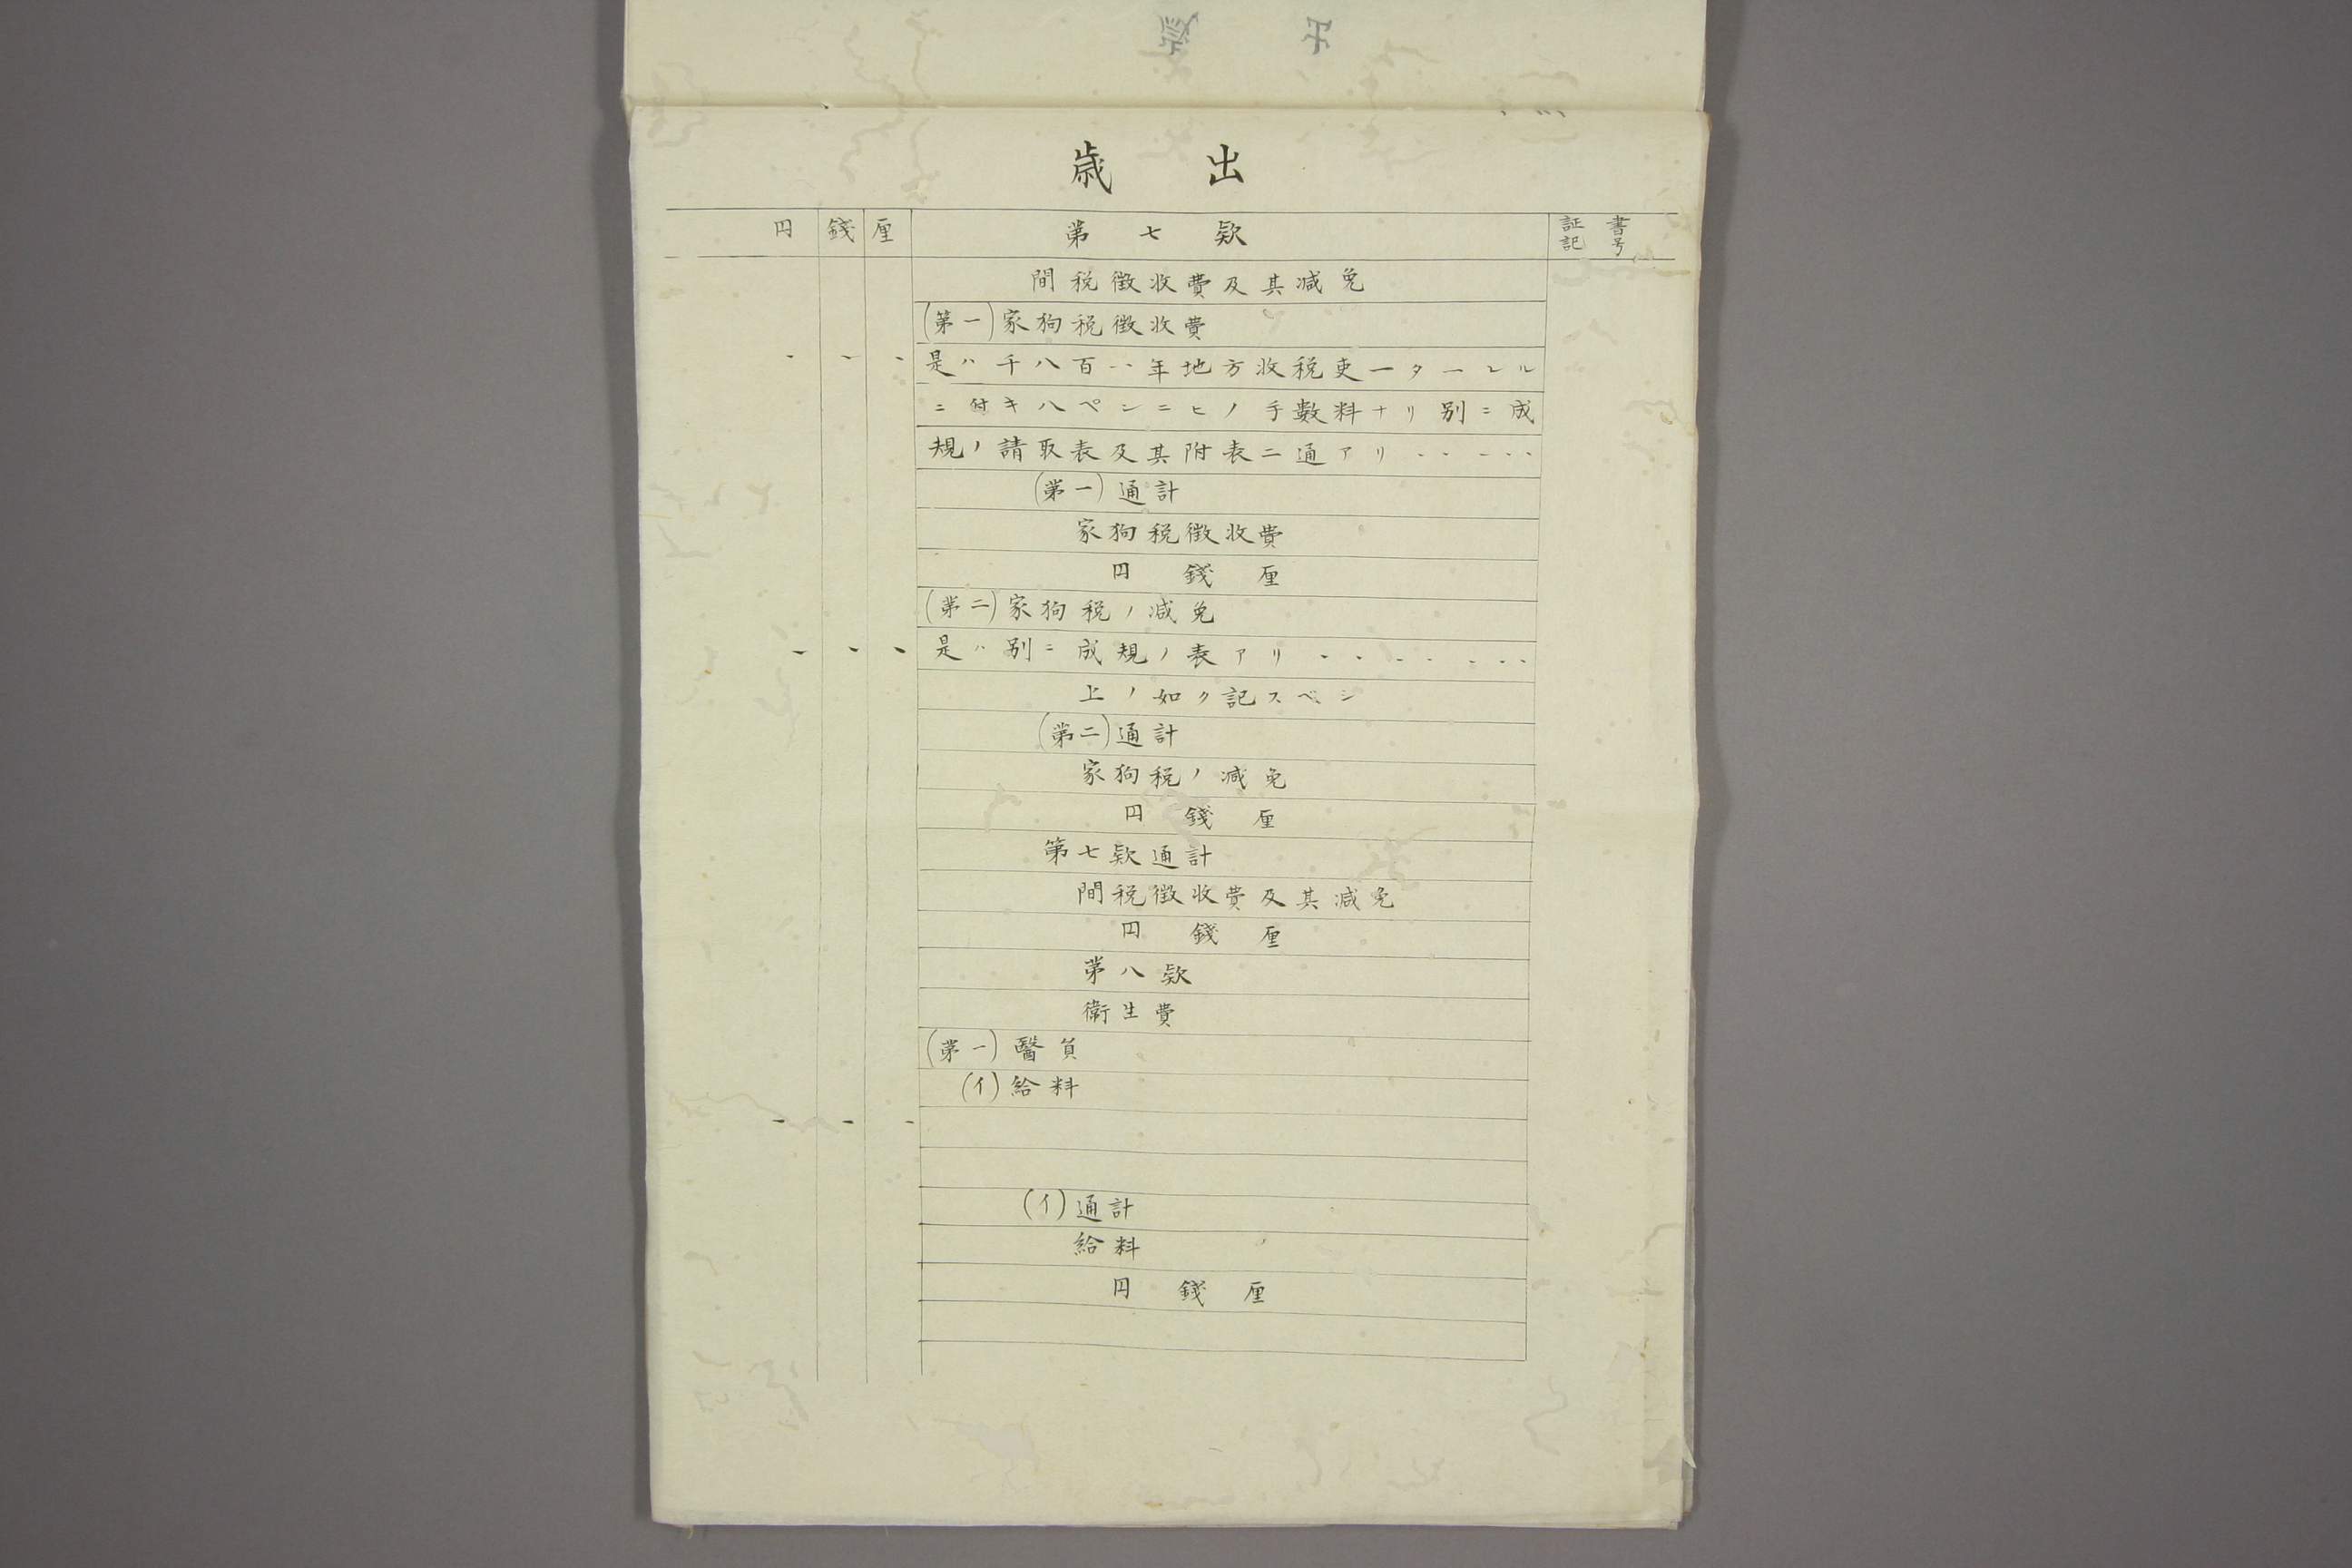 歳出
円 錢 厘 第七欵 証書記号
間税徴收費及其减免
(第一)家狗税徴收費
是ハ千八百‥年地方收税吏一ターレル
ニ付キ八ペンニヒノ手數料ナリ別ニ成
規ノ請取表及其附表二通アリ
(第一)通計
家狗税徴收費
円 錢 厘
(第二)家狗税ノ减免
是ハ別ニ成規ノ表アリ
上ノ如ク記スベシ
(第二)通計
家狗税ノ减免
円 錢 厘
第七欵通計
間税徴收費及其减免
円 錢 厘
第八欵
衛生費
(第一)醫員
(イ)給料
(イ)通計
給料
円 錢 厘